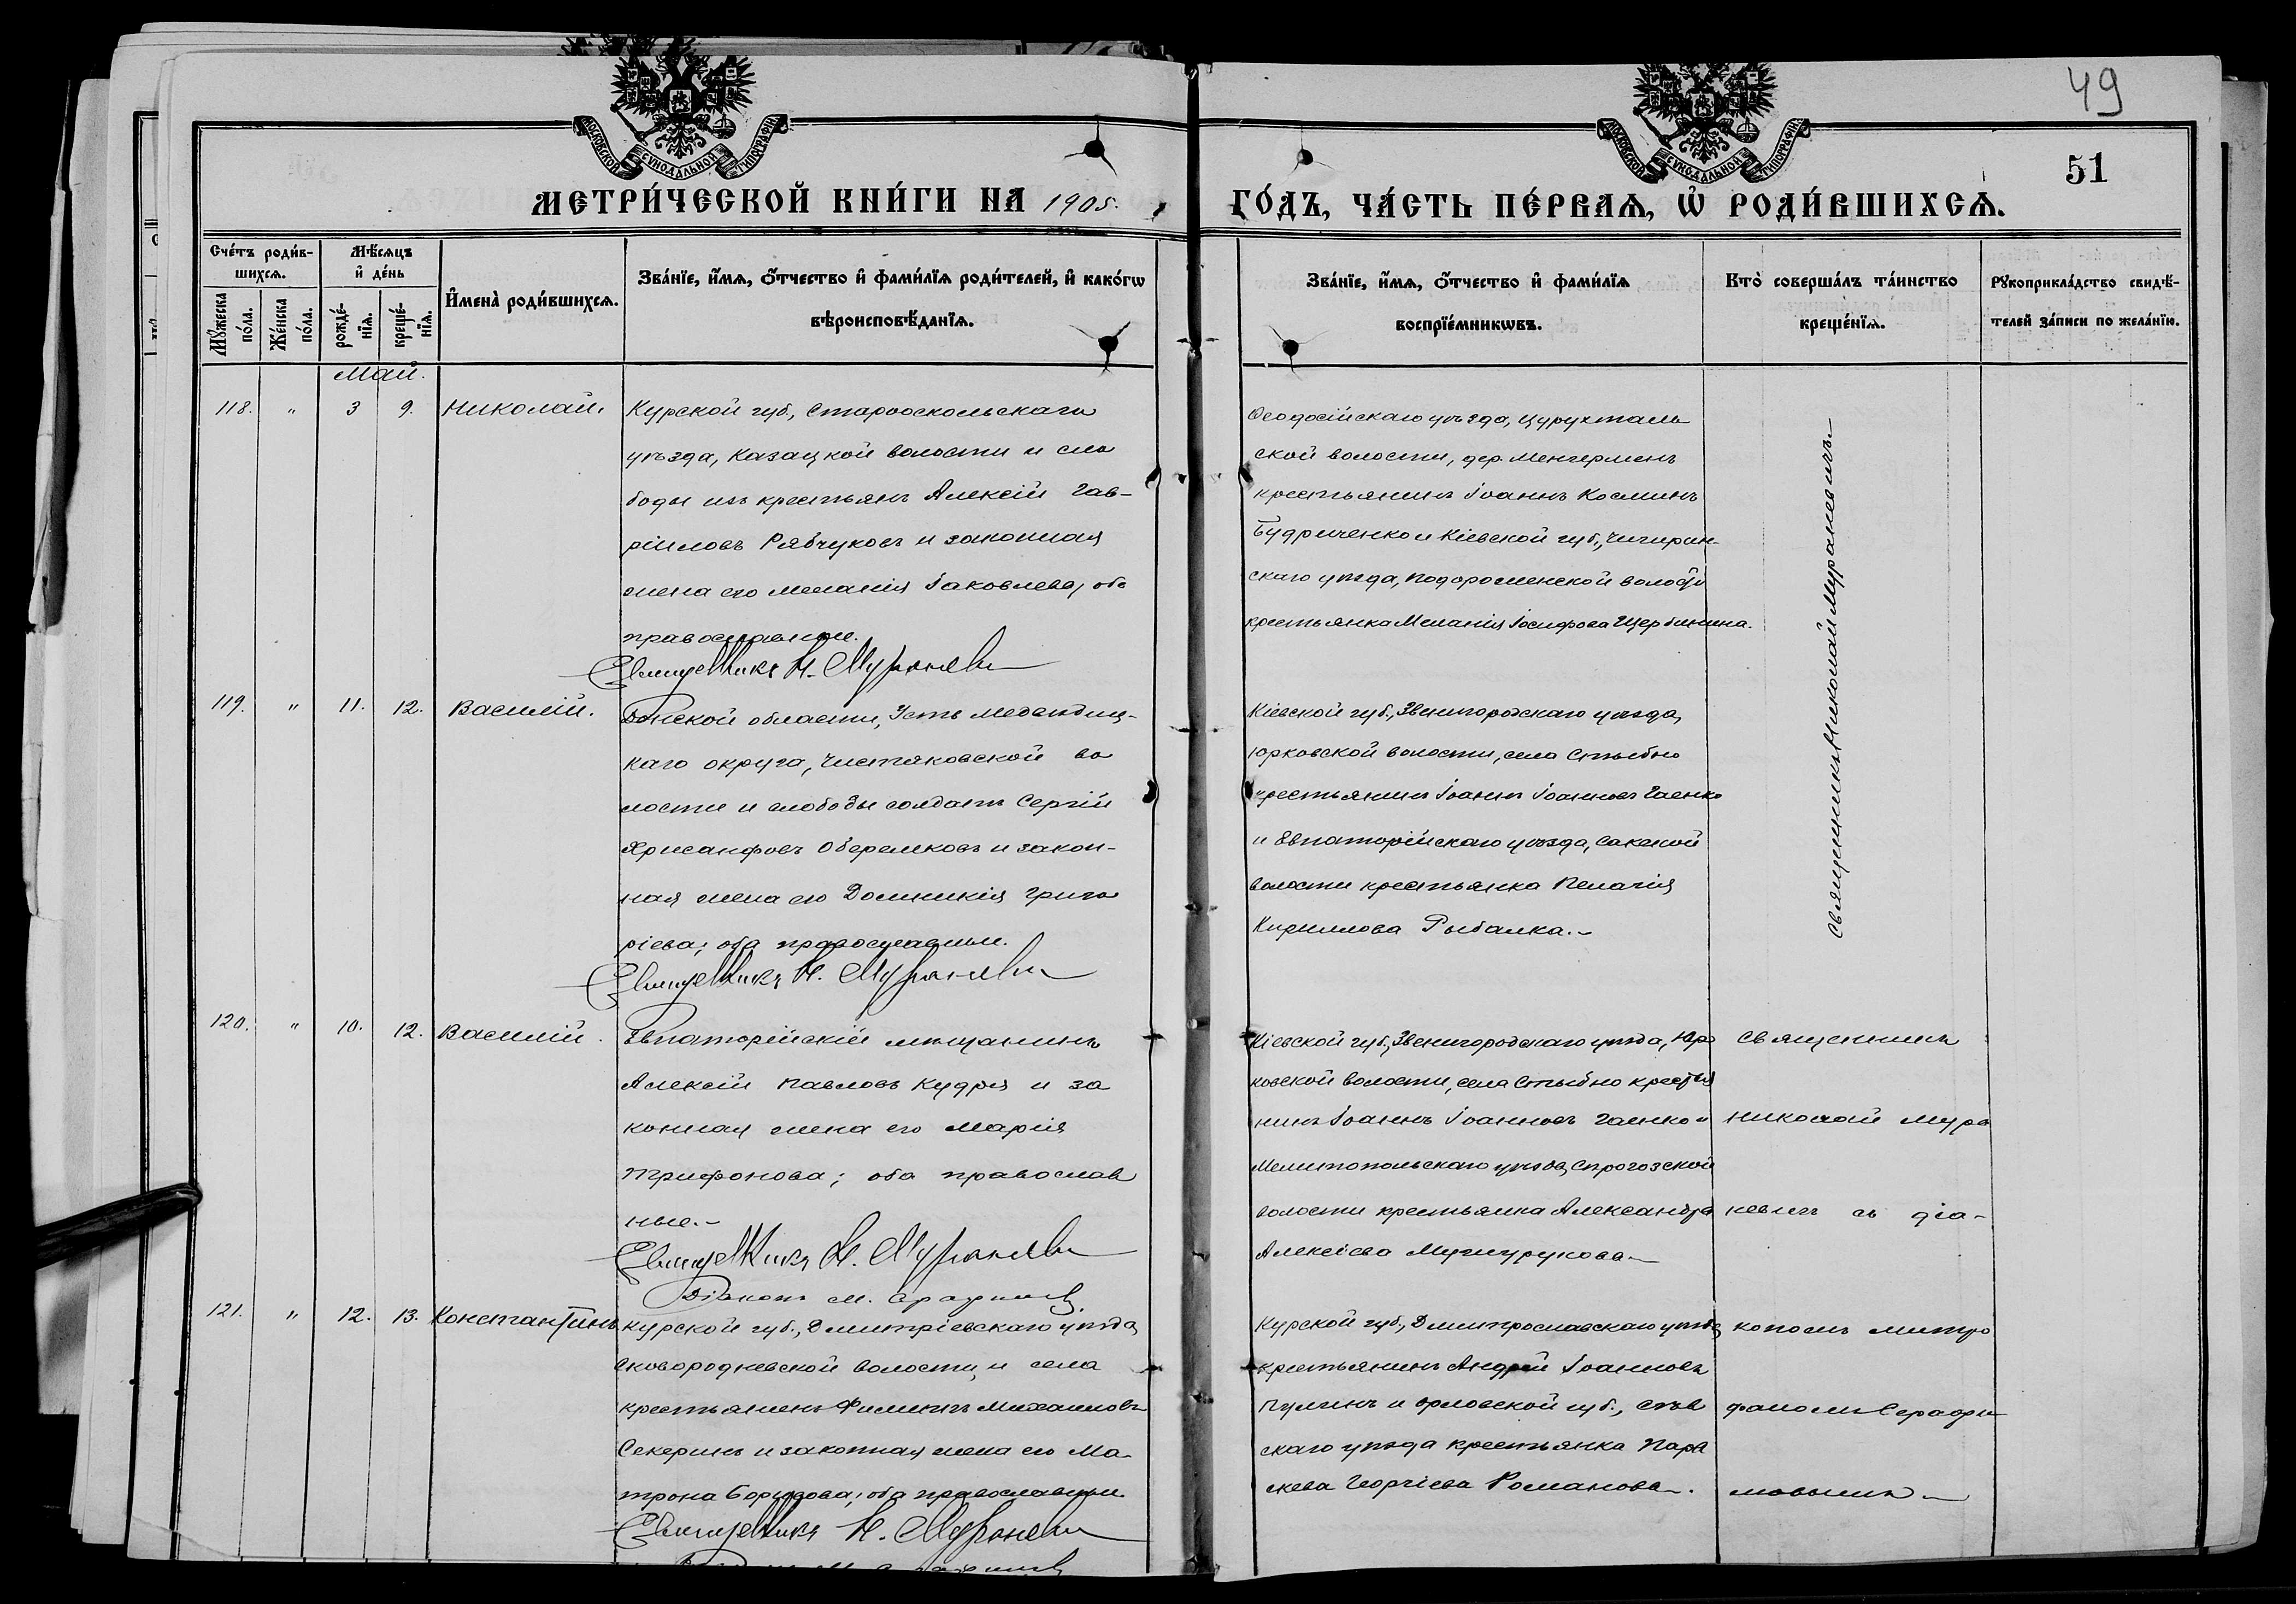 49
51
МОСКОВСКОЙ СѴНОДАЛЬНОЙ ТИПОГРАФІИ
МОСКОВСКОЙ СѴНОДАЛЬНОЙ ТИПОГРАФІИ
МЕТРИ́ЧЕСКОЙ КНИ́ГИ НА 1905.
ГО́ДЪ, ЧА́СТЬ ПЕ́РВАѦ, Ѡ҆ РОДИ́ВШИХСѦ.
Сче́тъ роди́в-
шихсѧ.
Мѣ́сѧцъ
и҆ де́нь
Мꙋ́жеска
по́ла.
Же́нска
по́ла.
рожде́-
нїѧ.
креще́-
нїѧ.
И҆мена̀ роди́вшихсѧ.
Зва́нїе, и҆́мѧ, ѻ҆́тчество и҆ фами́лїѧ роди́телей, и҆ како́гѡ
вѣроисповѣ́данїѧ.
Зва́нїе, и҆́мѧ, ѻ҆́тчество и҆ фами́лїѧ
воспрїе́мникѡвъ.
Кто̀ соверша́лъ та́инство
креще́нїѧ.
Рꙋкоприкла́дство свидѣ́-
телей за́писи по жела́нїю.
Май.
118. " 3 9. Николай.
Курской губ., Старооскольскаго
уѣзда, Казацкой волости и сло
боды изъ крестьянъ Алексій Гав-
ріиловъ Рябчуковъ и законная
жена его Меланія Іаковлева, оба
православные.
Священникъ Н. Мураневичъ
Ѳеодосійскаго уѣзда, Цурухталь
ской волости, дер. Менгерменъ
крестьянинъ Іоаннъ Косминъ
Будниченко и Кіевской губ., Чигирин-
скаго уѣзда, волости
крестьянка Меланія Іосифова Щербинина.
Священникъ Николай Мураневичъ.
119. " 11. 12. Василій.
Донской области, Усть Медведиц-
каго округа, Чистяковской во
лости и слободы солдатъ Сергій
Хрисанфовъ Оберемковъ и закон-
ная жена его Домникія Григо
ріева; оба православные.
Священникъ Н. Мураневичъ
Кіевской губ., Звенигородскаго уѣзда,
Юрковской волости, села Стыбно
крестьянинъ Іоаннъ Іоанновъ Гаенко
и Евпаторійскаго уѣзда, Сакской
волости крестьянка Пелагія
Кириллова Рыбалка.
120. " 10. 12. Василій.
Евпаторійскій мѣщанинъ
Алексій Павловъ Кудря и за
конная жена его Марія
Трифонова; оба православ
ные.
Священникъ Н. Мураневичъ
Діаконъ М. Серафимовъ
Кіевской губ., Звенигородскаго уѣзда, Юр
ковской волости, села Стыбно крестья
нинъ Іоаннъ Іоанновъ Гаенко и
Мелитопольскаго уѣзда,
волости крестьянка Александра
Алексіева
Священникъ
Николай Мура
невичъ съ діа-
кономъ Митро
фаномъ Серафи
мовымъ
121. " 12. 13. Константинъ
Курской губ., Дмитріевскаго уѣзда,
Сковородневской волости, и села
крестьянинъ Филиппъ Михаиловъ
Секеринъ и законная жена его Ма-
трона Борисова; оба православные.
Священникъ Н. Мураневичъ
Курской губ., Дмитрославскаго уѣзда,
крестьянинъ Андрей Іоанновъ
Пулинъ и Орловской губ., Сѣв
скаго уѣзда крестьянка Пара
скева Георгіева Романова.